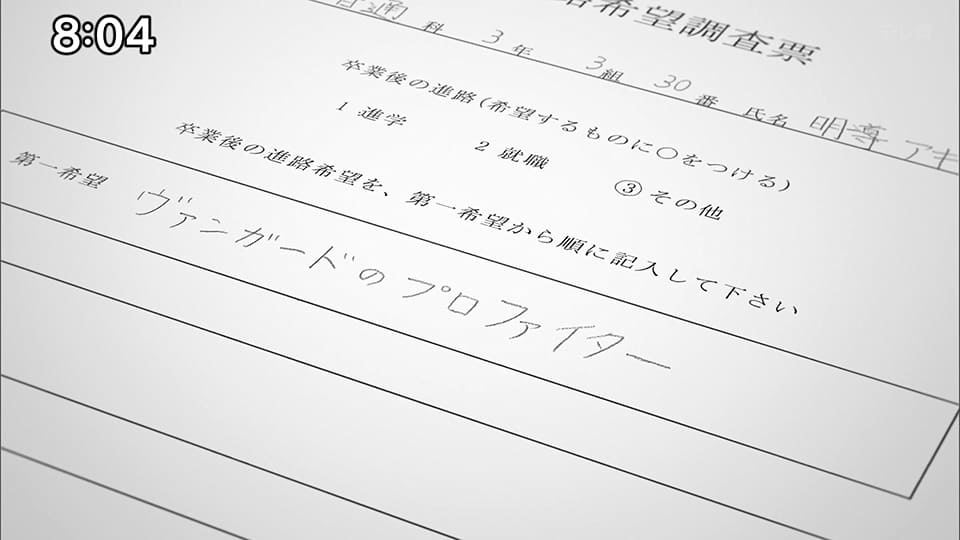 8:04
路希望調査票
普通 科 3 年 3 組 30 番 氏名 明導 アキ
卒業後の進路(希望するものに○をつける)
1 進学 2 就職 ③ その他
卒業後の進路希望を、第一希望から順に記入して下さい
第一希望 ヴァンガードのプロファイター